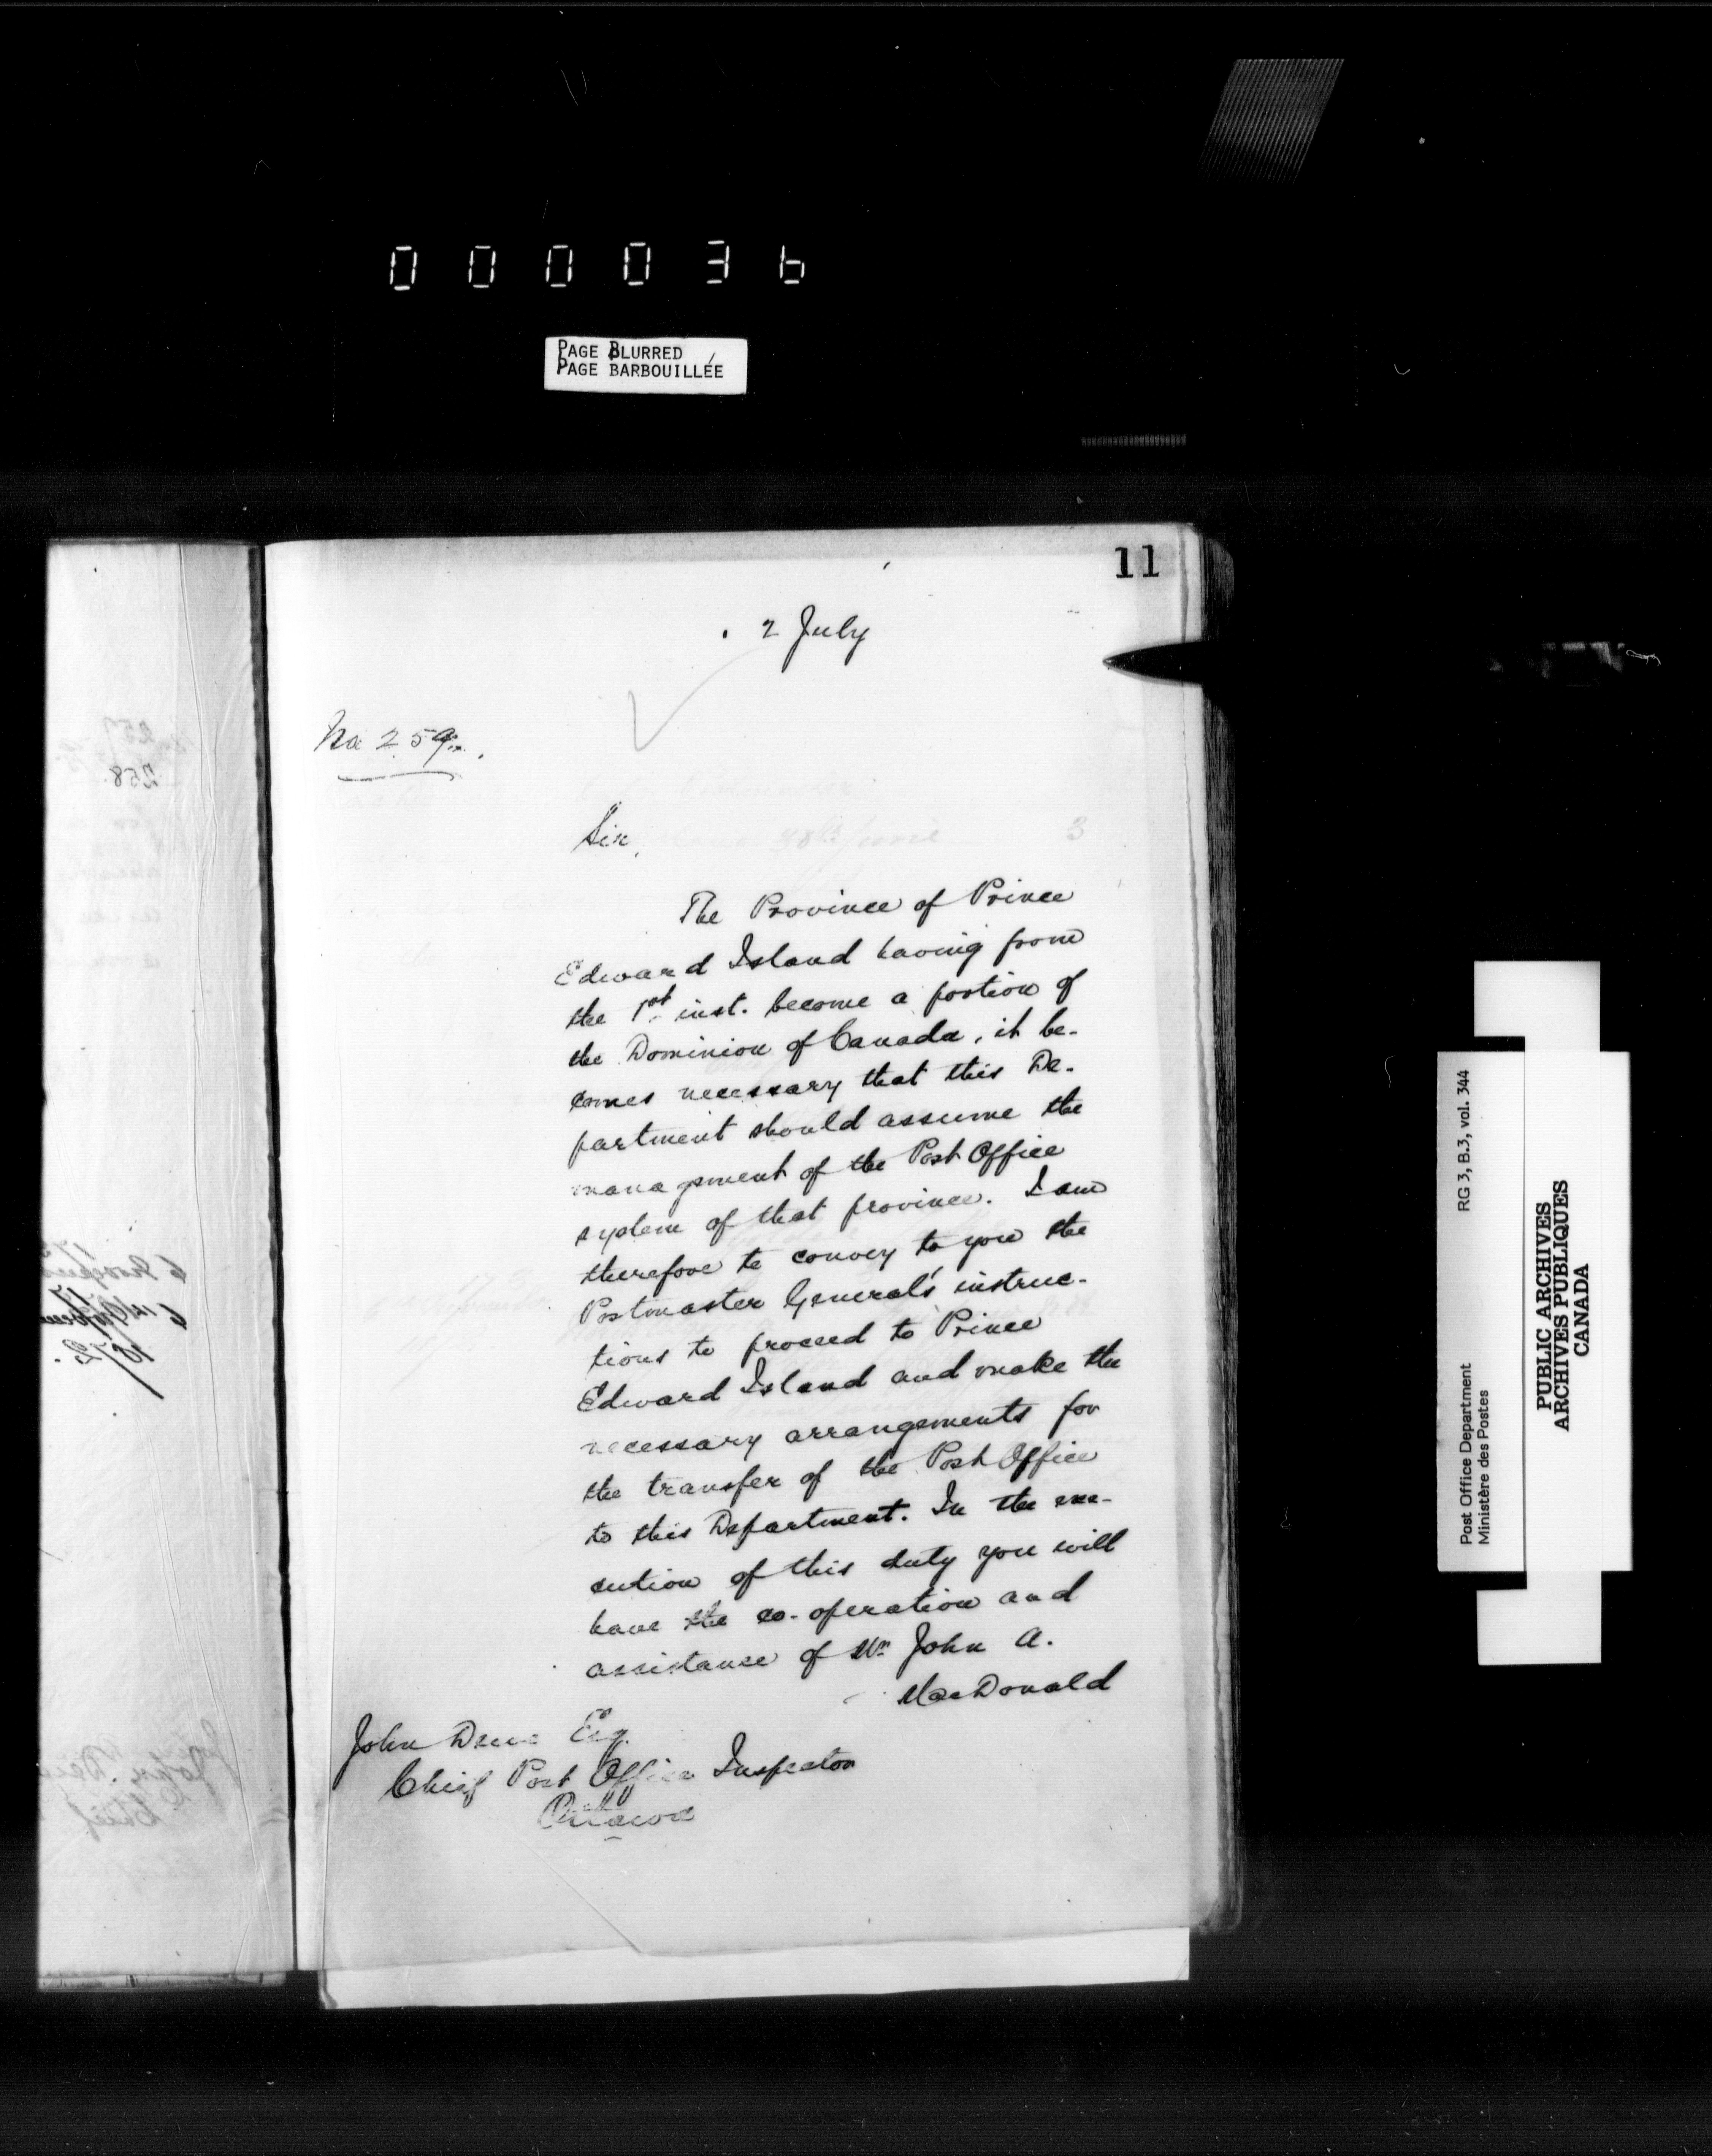 000036
PAGE BLURRED
PAGE BARBOUILLÉE
11
2 July
No 259
Sir,
The Province of Prince
Edward Island having from
the 1st inst. become a portion of
the Dominion of Canada, it be-
comes necessary that this De-
partment should assume the
management of the Post Office
system of that province. I am
therefore to convey to you the
Postmaster General's instruc-
tions to proceed to Prince
Edward Island and make the
necessary arrangements for
the transfer of the Post Office
to this Department. In the exe-
cution of this duty you will
have the co-operation and
assistance of Mr John A.
MacDonald
John Dewe Esq.
Chief Post Office Inspector
Ottawa
Post Office Department RG 3, B.3, vol. 344
Ministère des Postes
PUBLIC ARCHIVES
ARCHIVES PUBLIQUES
CANADA